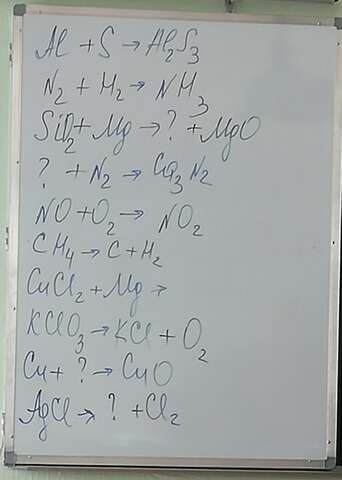 Al + S → Al₂S₃
N₂ + H₂ → NH₃
SiO₂ + Mg → ? + MgO
? + N₂ → Ca₃N₂
NO + O₂ → NO₂
CH₄ → C + H₂
CuCl₂ + Mg →
KClO₃ → KCl + O₂
Cu + ? → CuO
AgCl → ? + Cl₂